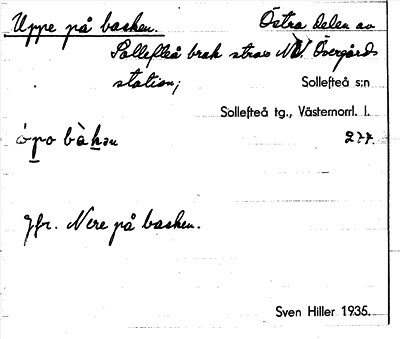 Uppe på backen. Östra delen av
Sollefteå brak strax N.V. Övergårds
station;
Sollefteå s:n
Sollefteå tg., Västernorrl. l.
ópo bàhan 277.
Jfr. Nere på backen.
Sven Hiller 1935.